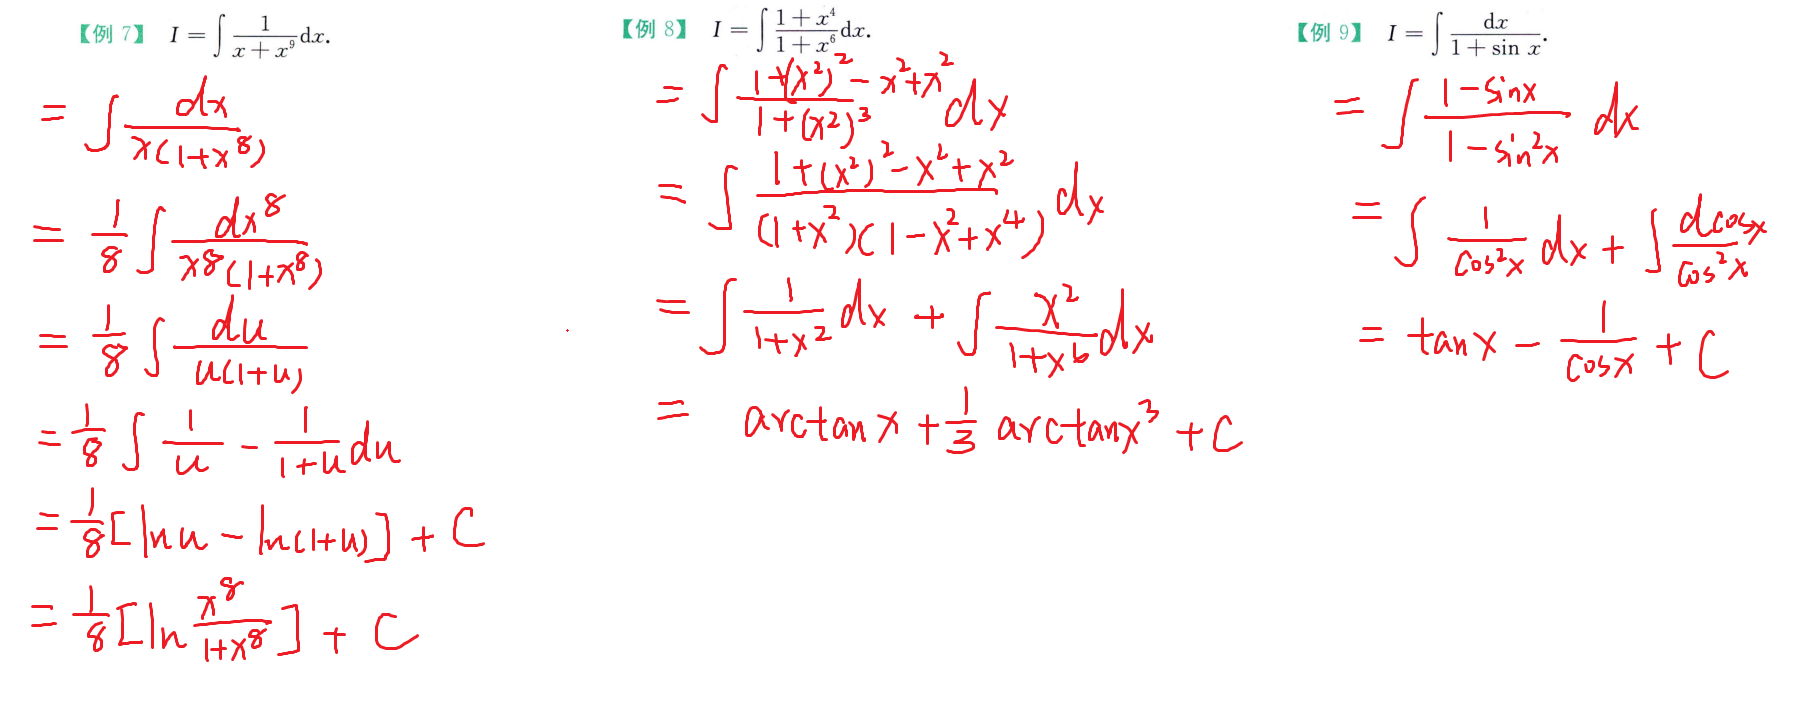 【例 7】 I = ∫ 1/(x + x⁹) dx.
= ∫ dx/(x(1+x⁸))
= 1/8 ∫ dx⁸/(x⁸(1+x⁸))
= 1/8 ∫ du/(u(1+u))
= 1/8 ∫ 1/u − 1/(1+u) du
= 1/8 [lnu − ln(1+u)] + C
= 1/8 [ln x⁸/(1+x⁸)] + C
【例 8】 I = ∫ (1 + x⁴)/(1 + x⁶) dx.
= ∫ (1+(x²)² − x² + x²)/(1+(x²)³) dx
= ∫ (1+(x²)² − x² + x²)/((1+x²)(1−x²+x⁴)) dx
= ∫ 1/(1+x²) dx + ∫ x²/(1+x⁶) dx
= arctanx + 1/3 arctanx³ + C
【例 9】 I = ∫ dx/(1 + sin x).
= ∫ (1−sinx)/(1−sin²x) dx
= ∫ 1/cos²x dx + ∫ dcosx/cos²x
= tanx − 1/cosx + C